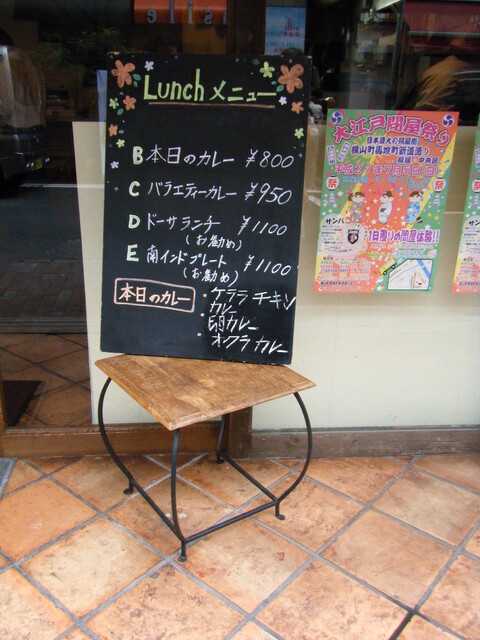 Lunch メニュー
B 本日のカレー ¥800
C バラエティーカレー ¥950
D ドーサランチ ¥1100
(お勧め)
E 南インドプレート ¥1100
(お勧め)
本日のカレー
・ケララチキン
カレー
・卵カレー
・オクラカレー
大江戸問屋祭り
日本最大の問屋街
横山町馬喰町新道通り
1日限りの問屋体験!!
サンバ
祭
祭